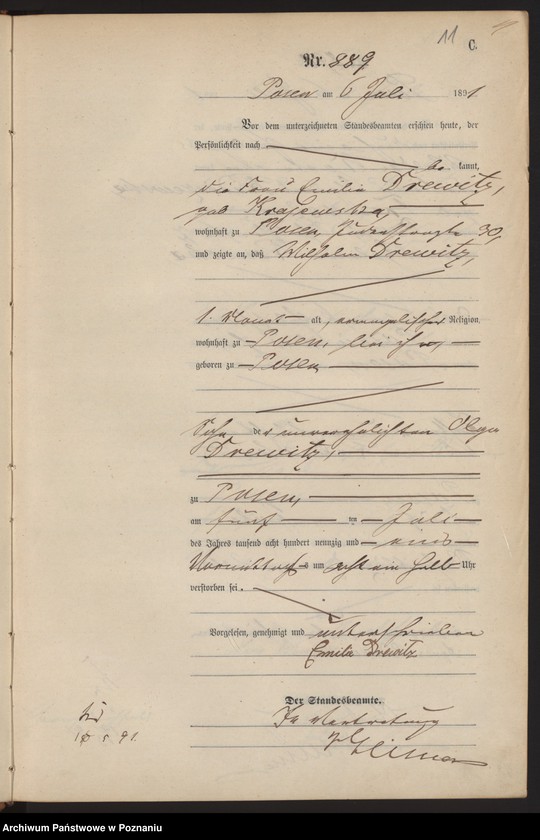 11
C.
Nr. 889
Posen am 6 Juli 1891
Vor dem unterzeichneten Standesbeamten erschien heute, der
Persönlichkeit nach
be kannt,
die Frau Emilie Drewitz,
geb Krajewska,
wohnhaft zu Posen, 30,
und zeigte an, daß Wilhelm Drewitz,
1 Monat alt, evangelischer Religion,
wohnhaft zu Posen, bei ihr,
geboren zu Posen
Sohn der unverehelichten Olga
Drewitz,
zu Posen,
am fünf ten Juli
des Jahres tausend acht hundert neunzig und eins
Vormittags um acht ein halb Uhr
verstorben sei.
Vorgelesen, genehmigt und unterschrieben
Emilie Drewitz
Der Standesbeamte.
In Vertretung
Archiwum Państwowe w Poznaniu